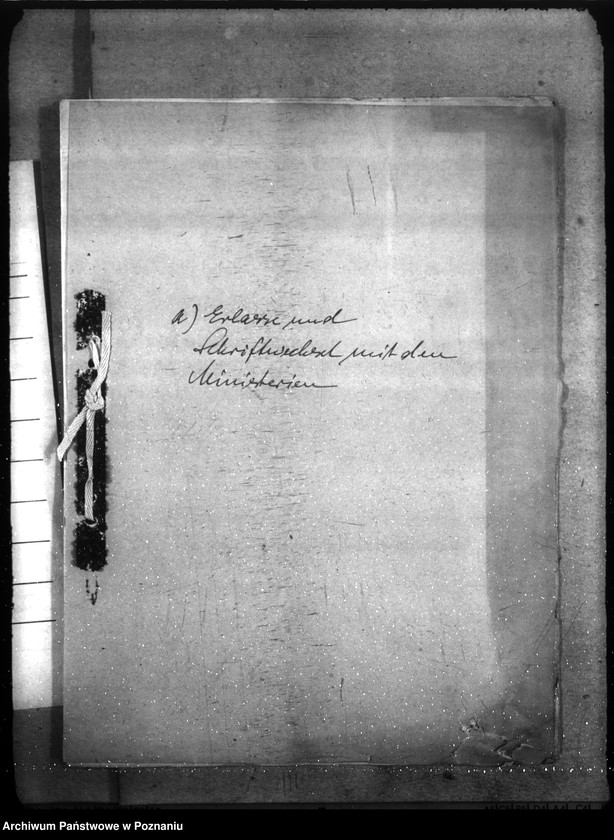 a) Erlasse und
Schriftwechsel mit den
Ministerien
Archiwum Państwowe w Poznaniu